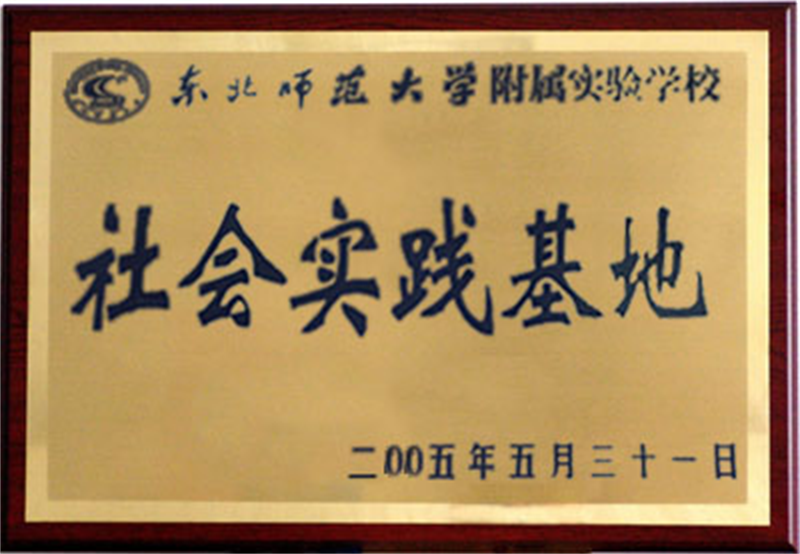 东北师范大学附属实验学校
社会实践基地
二00五年五月三十一日